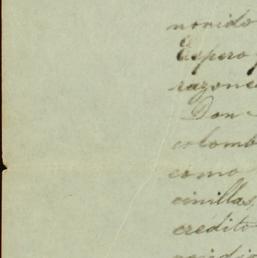 novido
Espero
razones
Don
colomb
como
cinillas,
credito